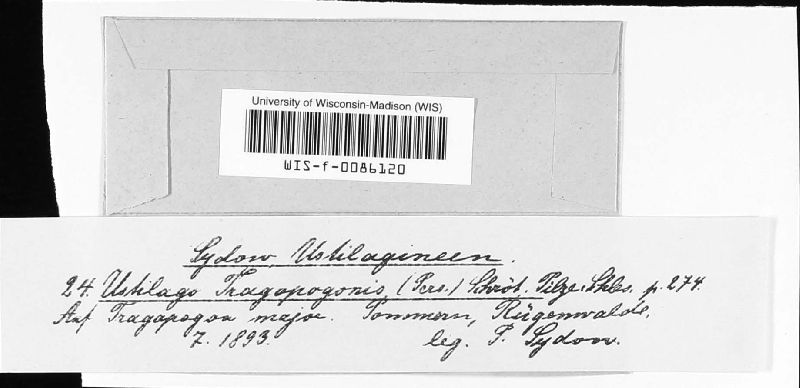 University of Wisconsin-Madison (WIS)
WIS-f-0086120
Sydow, Ustilagineen.
24. Ustilago Tragopogonis (Pers.) Schröt. Pilze Schles. p. 274.
Auf Tragopogon major. Pommern, Rügenwalde.
7. 1893. leg. P. Sydow.